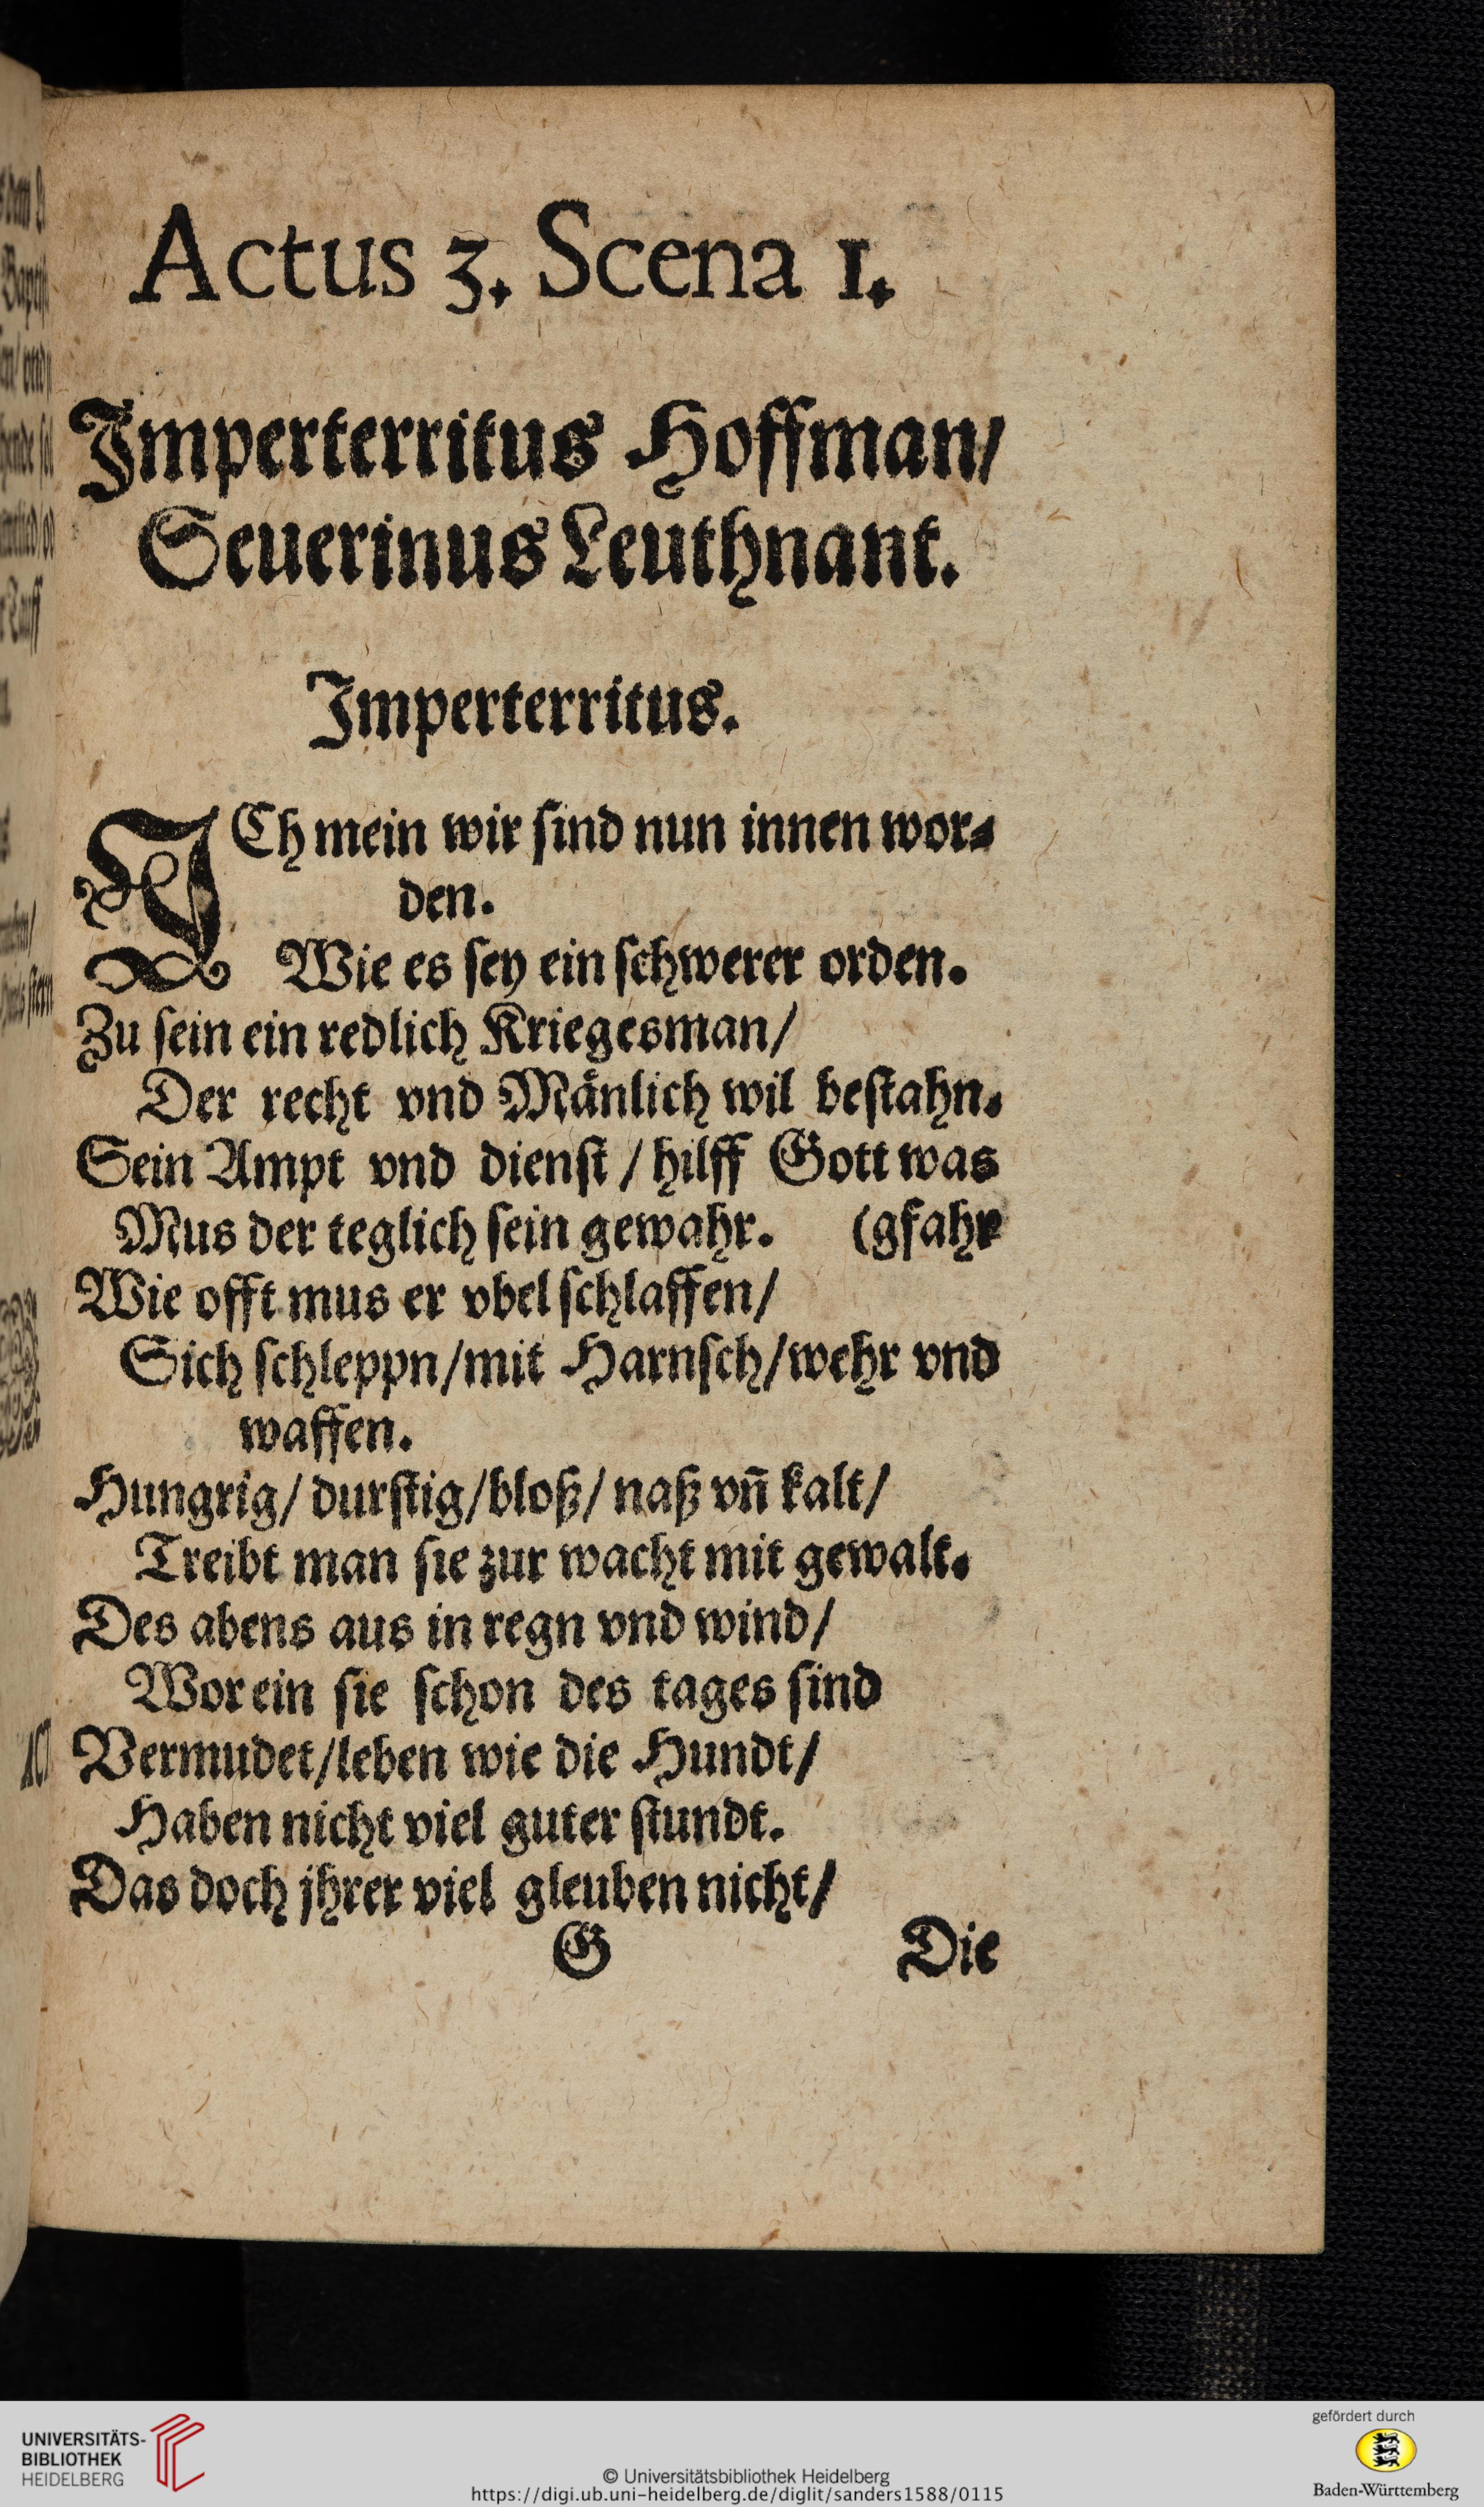 Actus 3. Scena 1.
Imperterritus Hoffman/
Seuerinus Leuthnant.
Imperterritus.
ICh mein wir sind nun innen wor-
den.
Wie es sey ein schwerer orden.
Zu sein ein redlich Kriegesman/
Der recht vnd Mänlich wil bestahn.
Sein Ampt vnd dienst / hilff Gott was
Mus der teglich sein gewahr. (gfahr
Wie offt mus er vbel schlaffen/
Sich schleppn/mit Harnsch/wehr vnd
waffen.
Hungrig/ durstig/bloß/ naß vñ kalt/
Treibt man sie zur wacht mit gewalt.
Des abens aus in regn vnd wind/
Worein sie schon des tages sind
Vermudet/leben wie die Hundt/
Haben nicht viel guter stundt.
Das doch jhrer viel gleuben nicht/
G Die
UNIVERSITÄTS-
BIBLIOTHEK
HEIDELBERG
© Universitätsbibliothek Heidelberg
https://digi.ub.uni-heidelberg.de/diglit/sanders1588/0115
gefördert durch
Baden-Württemberg